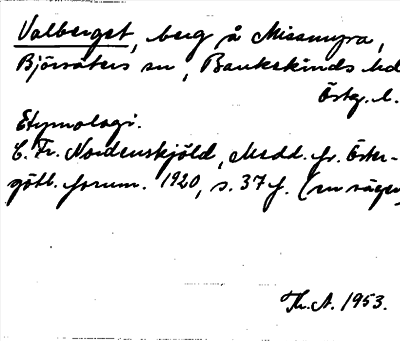 Valberget, berg å Missmyra,
Björsäters sn, Bankekinds hd
Östg. l.
Etymologi.
C. Fr. Nordenskjöld, Medd. fr. Öster-
götl. fornm. 1920, s. 37 f. (en sägen)
Th. A. 1953.